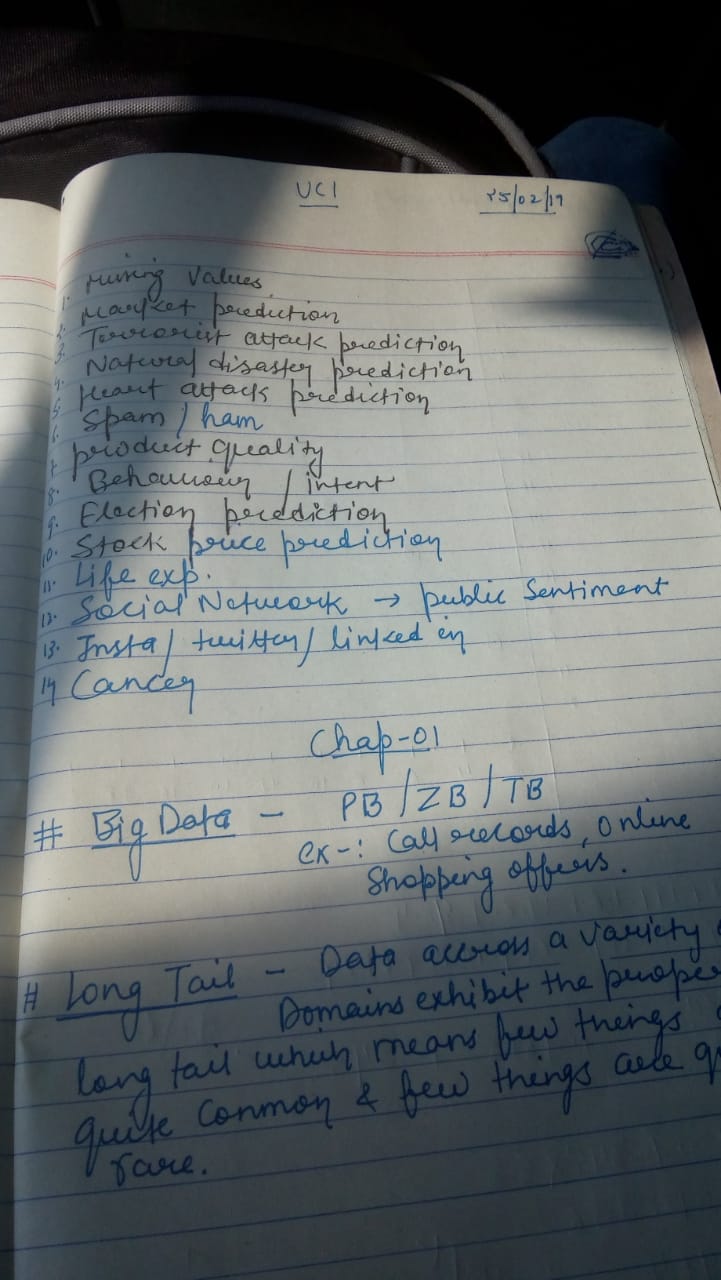 UCI
25/02/19
1. Missing Values
2. Market prediction
3. Terrorist attack prediction
4. Natural disaster prediction
5. Heart attack prediction
6. Spam / ham
7. product quality
8. Behaviour / intent
9. Election prediction
10. Stock price prediction
11. Life exp.
12. Social Network → public Sentiment
13. Insta / twitter / linked in
14 Cancer
Chap-01
# Big Data - PB / ZB / TB
ex-: Call records, Online
Shopping offers.
# Long Tail - Data accross a variety
Domains exhibit the
long tail which means few things
quite common & few things are
rare.